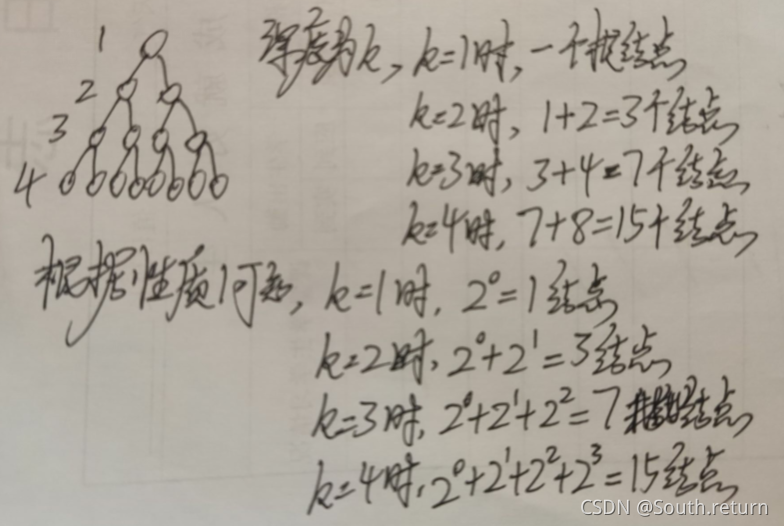 1
深度为k, k=1时, 一个根结点
2
k=2时, 1+2=3个结点
3
k=3时, 3+4=7个结点
4
k=4时, 7+8=15个结点
根据性质1可知, k=1时, 2⁰=1结点
k=2时, 2⁰+2¹=3结点
k=3时, 2⁰+2¹+2²=7结点
k=4时, 2⁰+2¹+2²+2³=15结点
CSDN @South.return